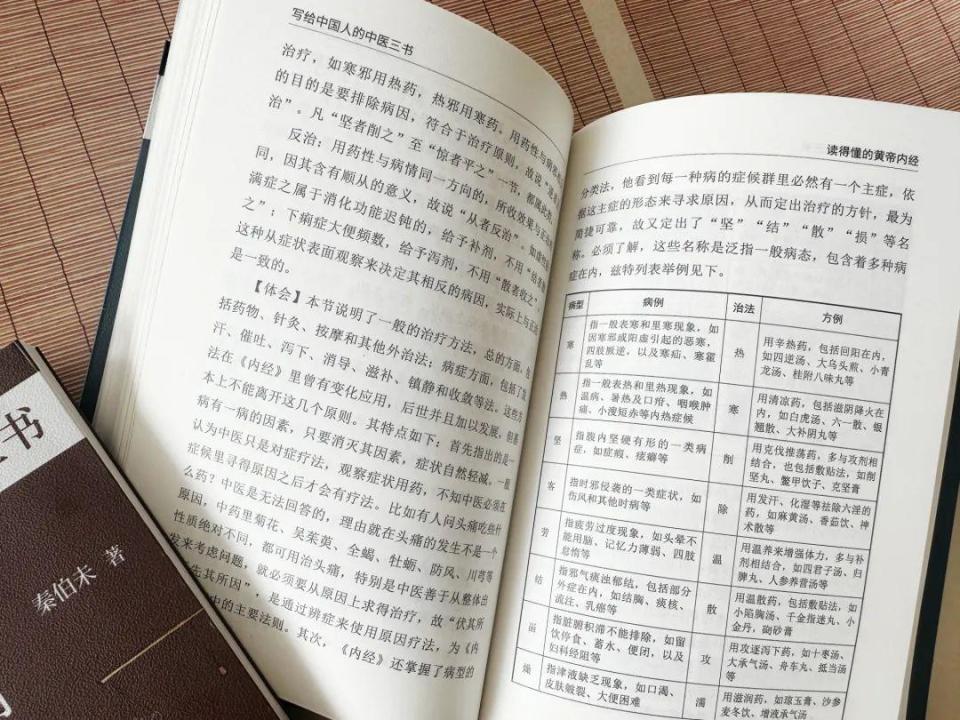 写给中国人的中医三书
治疗，如寒邪用热药，热邪用寒药。用药性与病邪
的目的是要排除病因，符合于治疗原则，故说“逆者
治”。凡“坚者削之”至“惊者平之”一节，都属此类。
反治：用药性与病情同一方向的，所收效果与正治
同，因其含有顺从的意义，故说“从者反治”。如
满症之属于消化功能迟钝的，给予补剂，不用“结者散
之”；下痢症大便频数，给予泻剂，不用“散者收之”。
这种从症状表面观察来决定其相反的病因，实际上与正治
是一致的。
【体会】本节说明了一般的治疗方法，总的方面，包
括药物、针灸、按摩和其他外治法；病症方面，包括了发
汗、催吐、泻下、消导、滋补、镇静和收敛等法。这些方
法在《内经》里曾有变化应用，后世并且加以发展，但基
本上不能离开这几个原则。其特点如下：首先指出的是一
病有一病的因素，只要消灭其因素，症状自然轻减。一般
认为中医只是对症疗法，观察症状用药，不知中医必须在
症候里寻得原因之后才会有疗法。比如有人问头痛吃些什
么药？中医是无法回答的，理由就在头痛的发生不是一个
原因，中药里菊花、吴茱萸、全蝎、牡蛎、防风、川芎等
性质绝对不同，都可用治头痛，特别是中医善于从整体出
发来考虑问题，就必须要从原因上求得治疗，故“伏其所
先其所因”，是通过辨症来使用原因疗法，为《内
中的主要法则。其次，《内经》还掌握了病型的
读得懂的黄帝内经
分类法，他看到每一种病的症候群里必然有一个主症，依
据这主症的形态来寻求原因，从而定出治疗的方针，最为
简捷可靠，故又定出了“坚”“结”“散”“损”等名
称。必须了解，这些名称是泛指一般病态，包含着多种病
症在内，兹特列表举例见下。
病型 病例 治法 方例
寒 指一般表寒和里寒现象，如因寒邪或阳虚引起的恶寒，四肢厥逆，以及寒疝、寒霍乱等 热 用辛热药，包括回阳在内，如四逆汤、大乌头煎、小青龙汤、桂附八味丸等
热 指一般表热和里热现象，如温病、暑热及口疳、咽喉肿痛、小溲短赤等内热症候 寒 用清凉药，包括滋阴降火在内，如白虎汤、六一散、银翘散、大补阴丸等
坚 指腹内坚硬有形的一类病症，如症瘕、痞癖等 削 用克伐推荡药，多与攻剂相结合，也包括敷贴法，如削坚丸、鳖甲饮子、克坚膏
客 指时邪侵袭的一类症状，如伤风和其他时病等 除 用发汗、化湿等祛除六淫的药，如麻黄汤、香茹饮、神术散等
劳 指疲劳过度现象，如头晕不能用脑、记忆力薄弱、四肢怠惰等 温 用温养来增强体力，多与补剂相结合，如四君子汤、归脾丸、人参养营汤等
结 指邪气痰浊郁结，包括部分外症在内，如结胸、痰核、流注、乳癌等 散 用温散药，包括敷贴法，如小陷胸汤、千金指迷丸、小金丹，硇砂膏
留 指脏腑积滞不能排除，如留饮停食、蓄水、便闭，以及妇科经阻等 攻 用攻逐泻下药，如十枣汤、大承气汤、舟车丸、抵当汤等
燥 指津液缺乏现象，如口渴、皮肤皴裂、大便困难 濡 用滋润药，如琼玉膏、沙参麦冬饮、增液承气汤
书
秦伯未 著